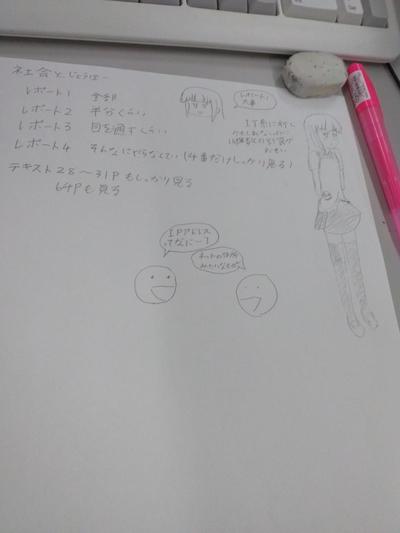 社会とじょうほー
レポート1 全部
レポート2 半分くらい
レポート3 目を通すくらい
レポート4 そんなにやらなくてい(4番だけしっかり見る)
テキスト28〜31Pもしっかり見る
64Pも見る
レポート1
大事
IPアドレス
ってなにー?
ネットの住所
みたいなもの